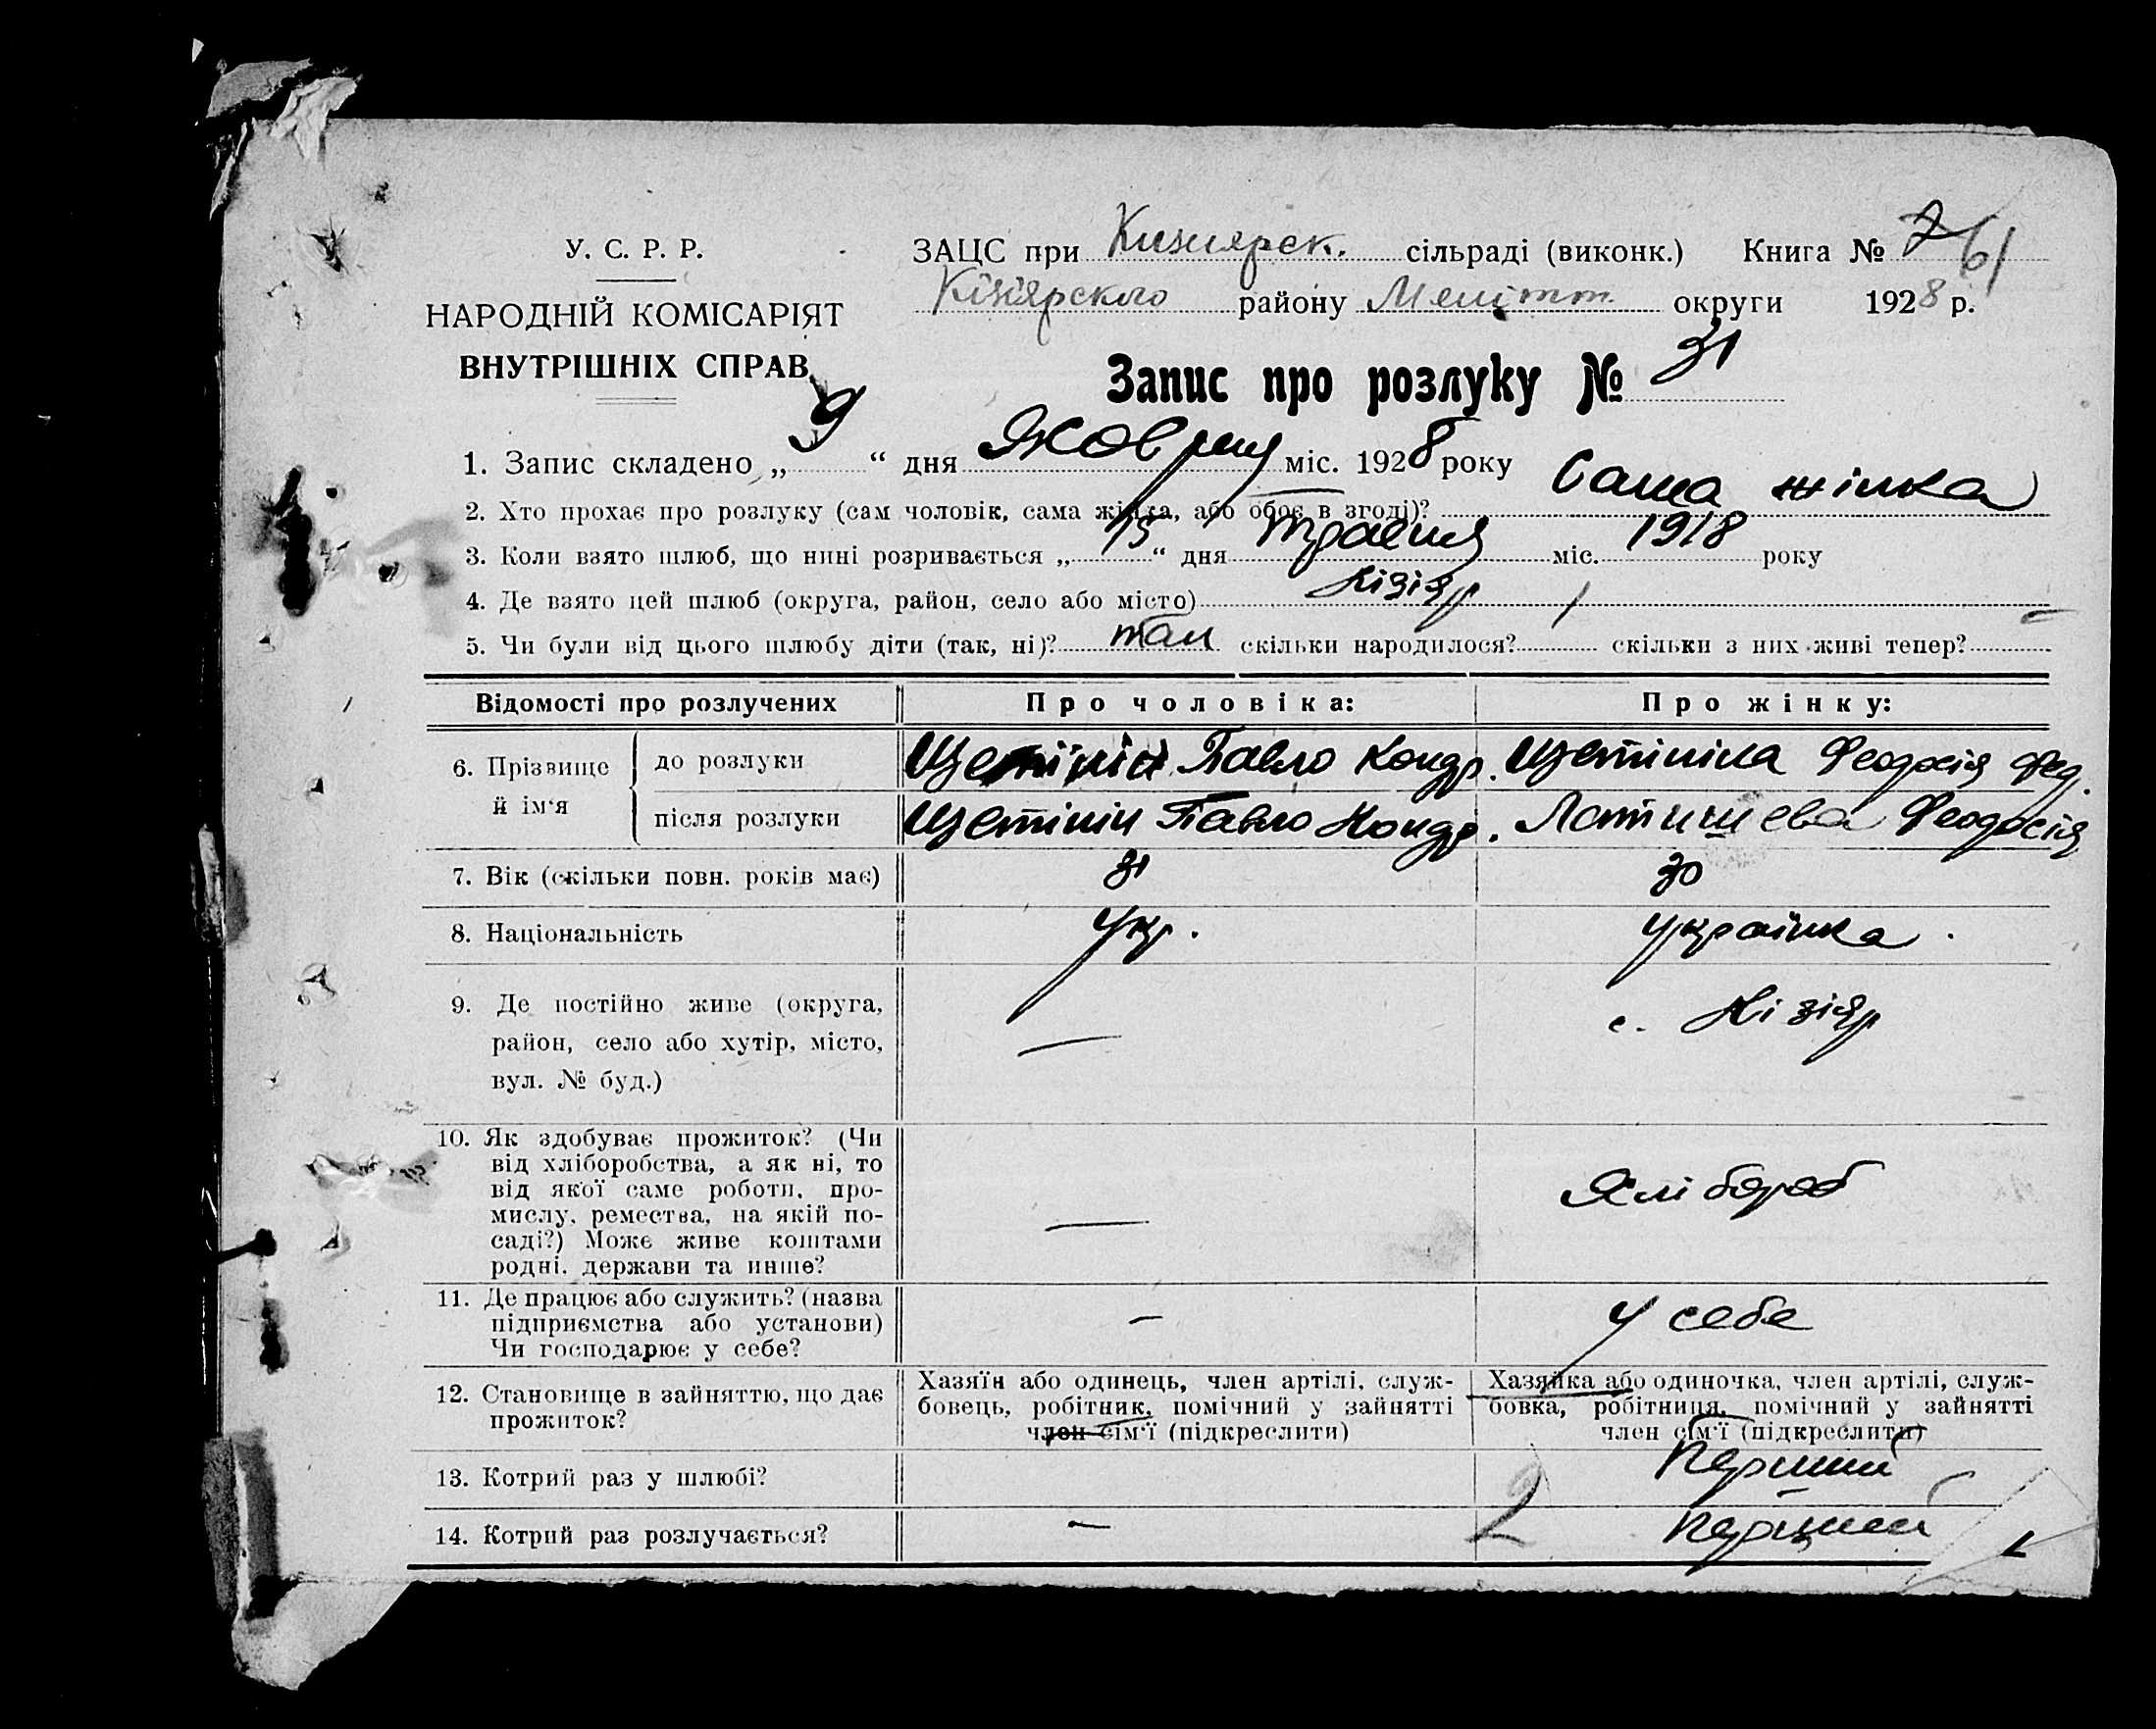 У. С. Р. Р.
НАРОДНІЙ КОМІСАРІЯТ
ВНУТРІШНІХ СПРАВ
ЗАЦС при Кизиярск. сільраді (виконк.) Книга № 61
Кізіярского району Меліт. округи 1928 р.
Запис про розлуку № 31
1. Запис складено „ 9 “ дня Жовтня міс. 1928 року
2. Хто прохає про розлуку (сам чоловік, сама жінка, або обоє в згоді)? Сама жінка
3. Коли взято шлюб, що нині розривається „ 15 “ дня травня міс. 1918 року
4. Де взято цей шлюб (округа, район, село або місто) Кізіяр
5. Чи були від цього шлюбу діти (так, ні)? так скільки народилося? 1 скільки з них живі тепер? –
Відомості про розлучених Про чоловіка: Про жінку:
6. Прізвище й ім‘я до розлуки Щетінін Павло Кондр. Щетініна Феодосія Фед.
після розлуки Щетінін Павло Кондр. Латишева Феодосія
7. Вік (скільки повн. років має) 31 30
8. Національність Укр. Українка.
9. Де постійно живе (округа, район, село або хутір, місто, вул. № буд.) — с. Кізіяр
10. Як здобуває прожиток? (Чи від хліборобства, а як ні, то від якої саме роботи, промислу, ремества, на якій посаді?) Може живе коштами родні, держави та инше? — Хлібороб
11. Де працює або служить? (назва підприємства або установи) Чи господарює у себе? – у себе
12. Становище в зайняттю, що дає прожиток? Хазяїн або одинець, член артілі, службовець, робітник, помічний у зайнятті член сім‘ї (підкреслити) Хазяйка або одиночка, член артілі, службовка, робітниця, помічний у зайнятті член сім‘ї (підкреслити)
13. Котрий раз у шлюбі? Перший
14. Котрий раз розлучається? – 2 Перший